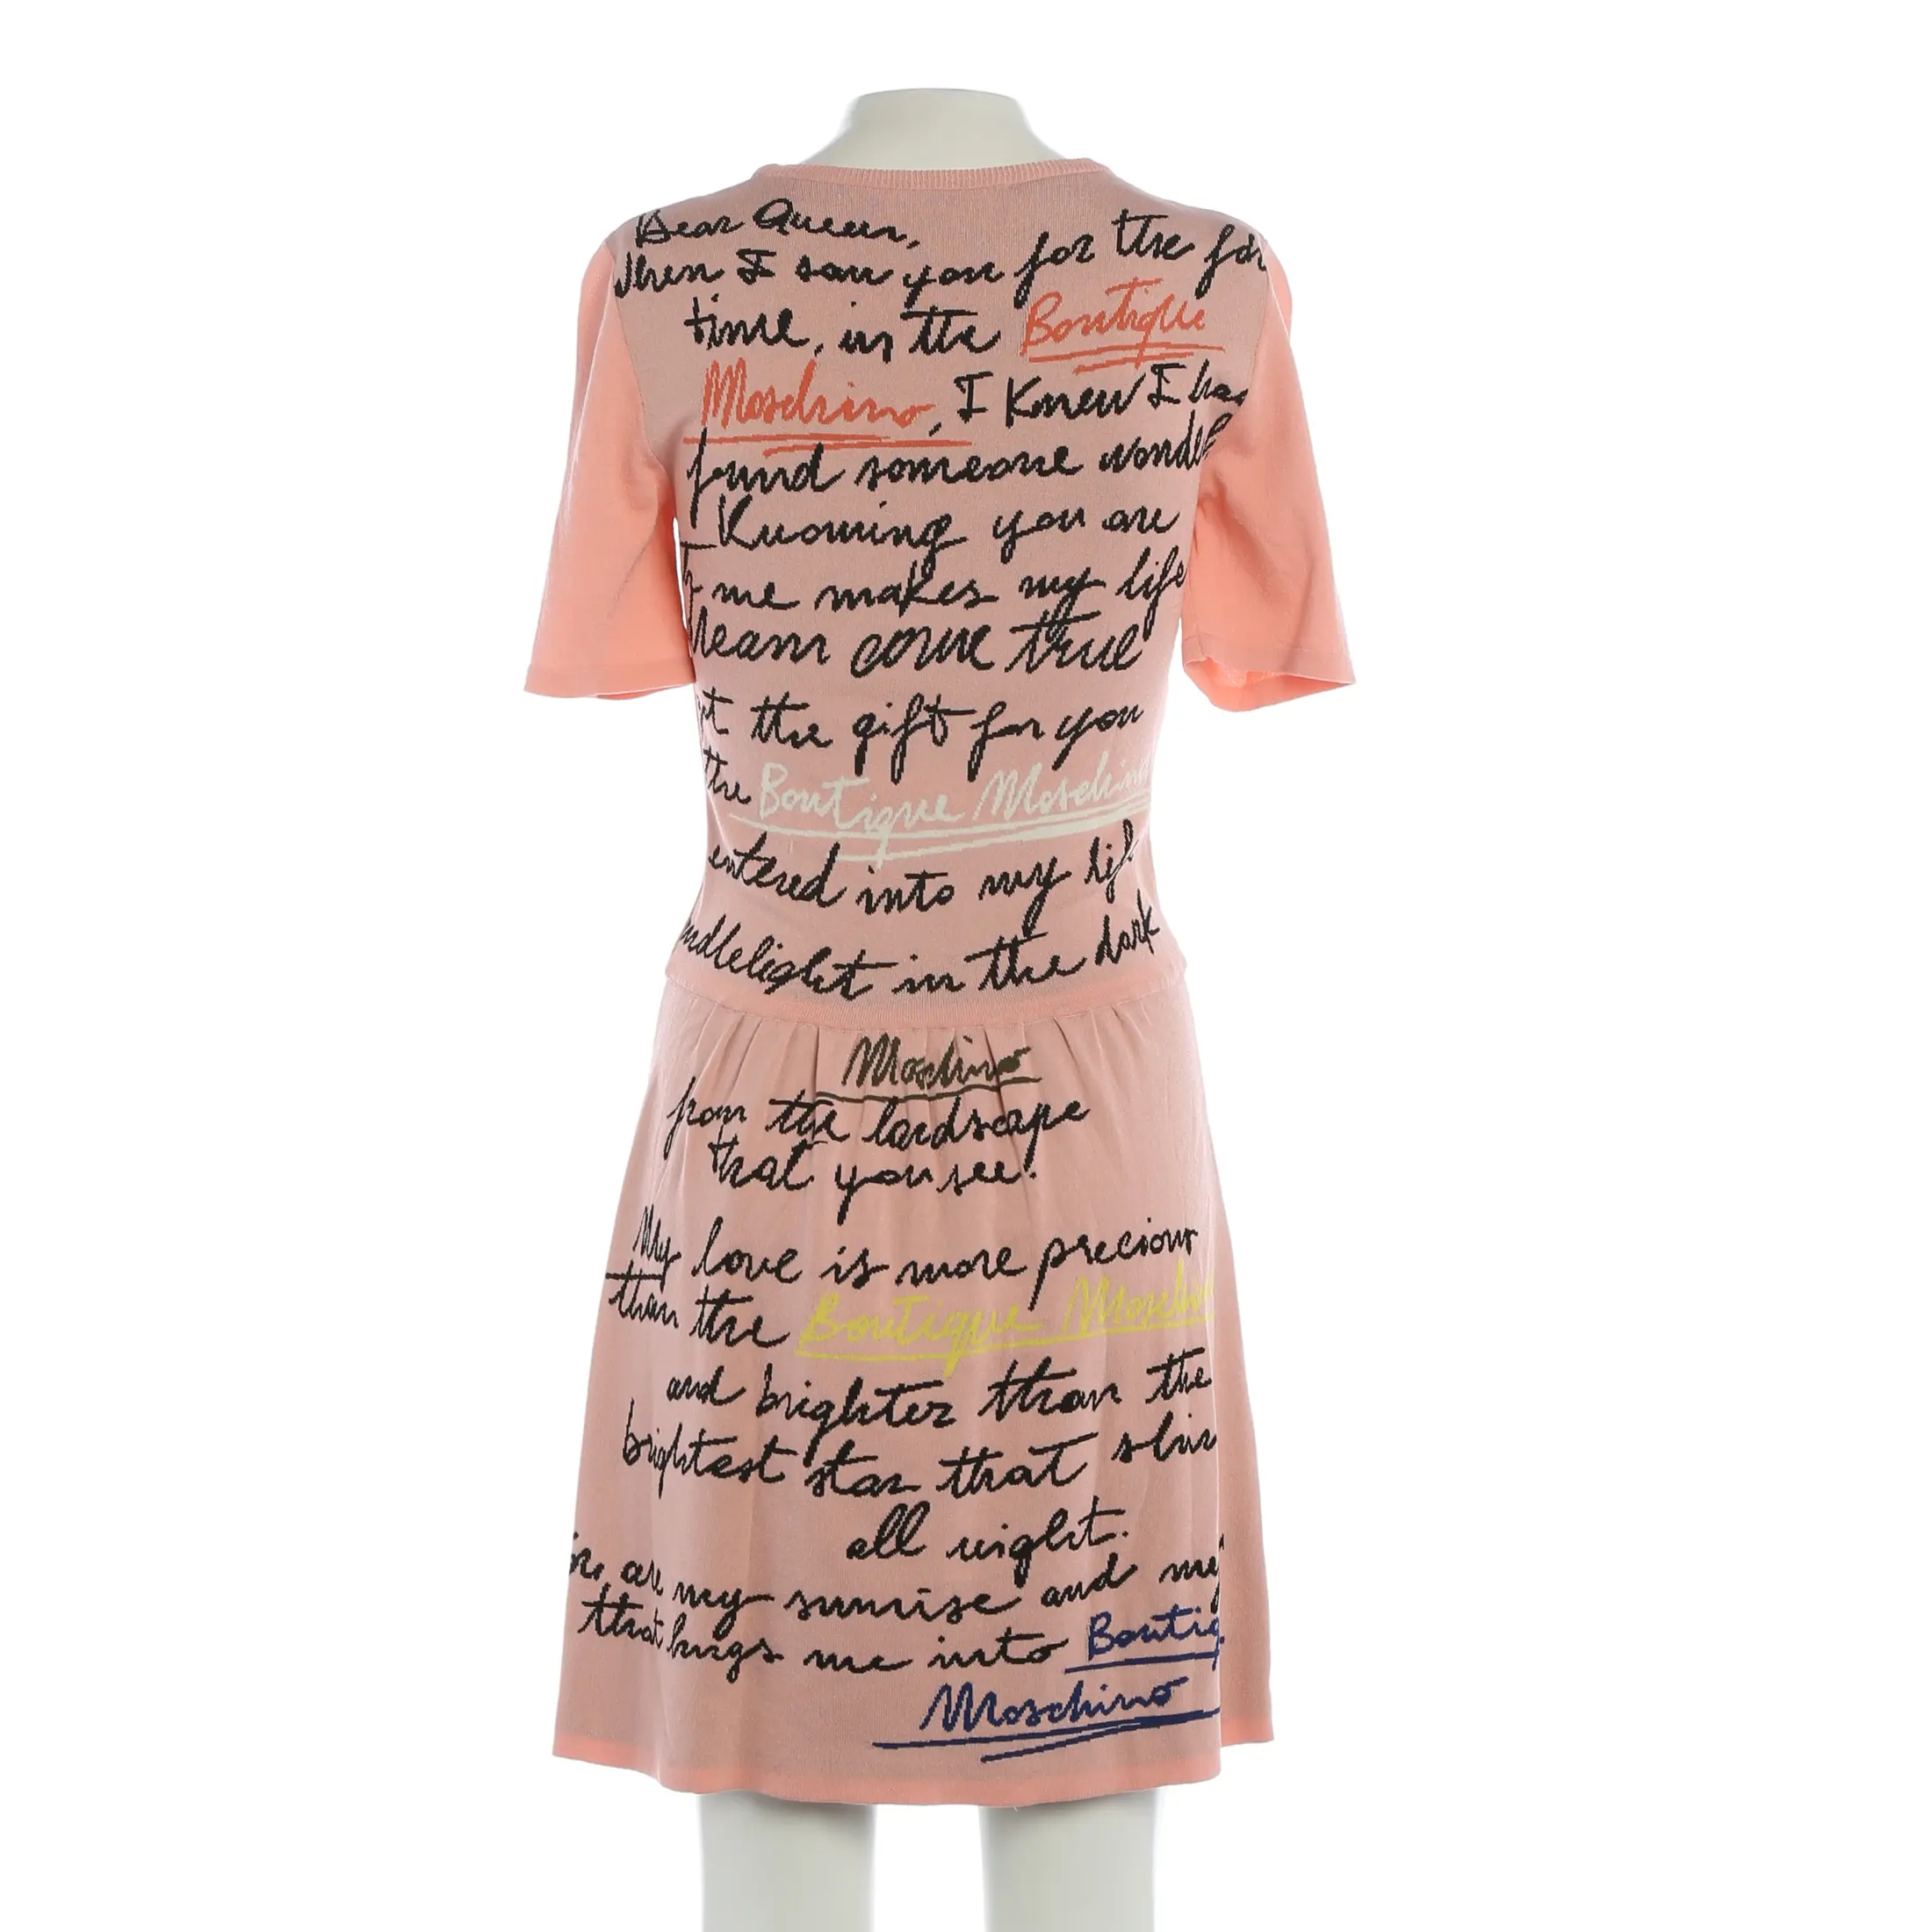 Dear Queen,
When I saw you for the for
time, in the Boutique
Moschino, I Knew I had
found someone wonde
Knowing you are
to me makes my life
dream come true
the gift for you
the Boutique Moschino
entered into my lif
ndlelight in the dark
Moschino
from the landscape
that you see!
My love is more precious
than the Boutique Moschin
and brighter than the
brightest star that shin
all night.
are my sunrise and my
that brings me into Boutiq
Moschino